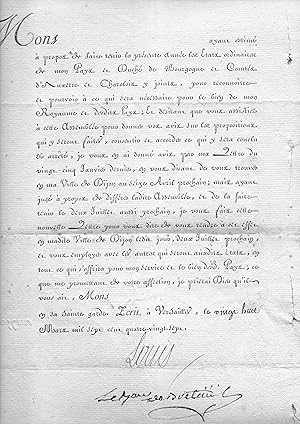 Mons ayant estimé
à propos de faire tenir la présente Année les Etats ordinaires
de mon Pays et Duché de Bourgogne et Comtés
d'Auxerre et Charolois y joints, pour reconnoître
et pourvoir à ce qui sera nécessaire pour le bien de mon
Royaume et desdits pays. Et désirant que vous assistiez
à cette Assemblée pour donner vos avis sur les propositions
qui y seront faites, consentir et accorder ce qui y sera conclu
et arresté, je vous en ai donné avis par ma Lettre du
vingt-cinq Janvier dernier, et vous de vous trouver
en ma Ville de Dijon au seize Avril prochain; mais ayant
jugé à propos de différer ladite Assemblée, et de la faire
tenir le deux Juillet aussi prochain, je vous fais cette
nouvelle Lettre pour vous dire de vous rendre à cet effet
en madite Ville de Dijon ledit jour, deux Juillet prochain,
et vous employer avec les autres qui seront auxdits Etats, en
tout ce qui s'offrira pour mon Service et le bien desd. Pays, ce
que me promettant de votre affection, je prierai Dieu qu'il
vous ait, Mons
en sa Sainte garde. Ecrit à Versailles, le vingt huit
Mars mil sept cent quatre-vingt-sept.
Louis
Le Bon de Breteuil